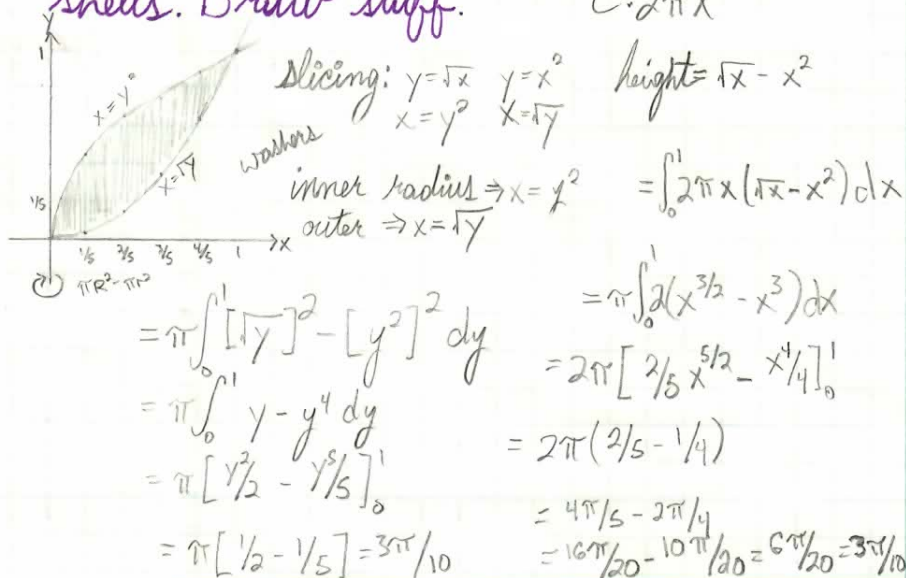 shells. Draw stuff.
C: 2πx
y
1
x = y²
x = √y
1/5
1/5 2/5 3/5 4/5 1 x
πR² - πr²
washers
slicing: y = √x y = x²
x = y² x = √y
inner radius ⇒ x = y²
outer ⇒ x = √y
= π∫₀¹ [√y]² - [y²]² dy
= π∫₀¹ y - y⁴ dy
= π[y²/2 - y⁵/5]₀¹
= π[1/2 - 1/5] = 3π/10
height = √x - x²
= ∫₀¹ 2πx(√x - x²) dx
= π∫₀¹ 2(x^(3/2) - x³) dx
= 2π[2/5 x^(5/2) - x⁴/4]₀¹
= 2π(2/5 - 1/4)
= 4π/5 - 2π/4
= 16π/20 - 10π/20 = 6π/20 = 3π/10